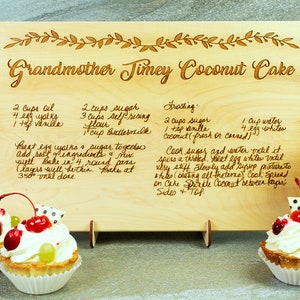 Grandmother Jimey Coconut Cake
2 cups Oil
4 egg yolks
1 tsp vanilla
2 cups sugar
3 cups self-rising
flour
1 cup buttermilk
Frosting:
2 cups sugar
1 tsp vanilla
Coconut (fresh or canned)
1 cup water
4 egg whites
Beat egg yolks & sugar together
add rest of ingredients & mix
well. Bake in 4 round pans
layers will be thin. Bake at
350° until done
Cook sugar and water until it
spins a thread. Beat egg whites until
very stiff. Slowly add syrup mixture to
whites beating all the time. Cool. Spread
on Cake. Sprinkle Coconut between layers,
Sides + Top